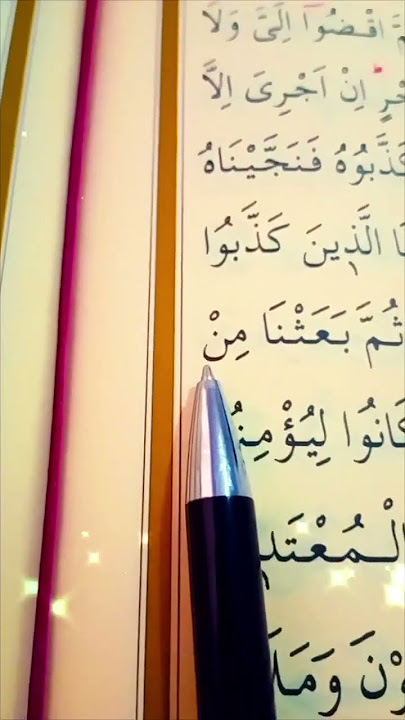 مَّ اقْضُوٓا اِلَيَّ وَلَا
جْرٍ اِنْ اَجْرِىَ اِلَّا
كَذَّبُوهُ فَنَجَّيْنَاهُ
نَا الَّذ۪ينَ كَذَّبُوا
ثُمَّ بَعَثْنَا مِنْ
كَانُوا لِيُؤْمِنُ
الْمُعْتَد۪
وْنَ وَمَلَ